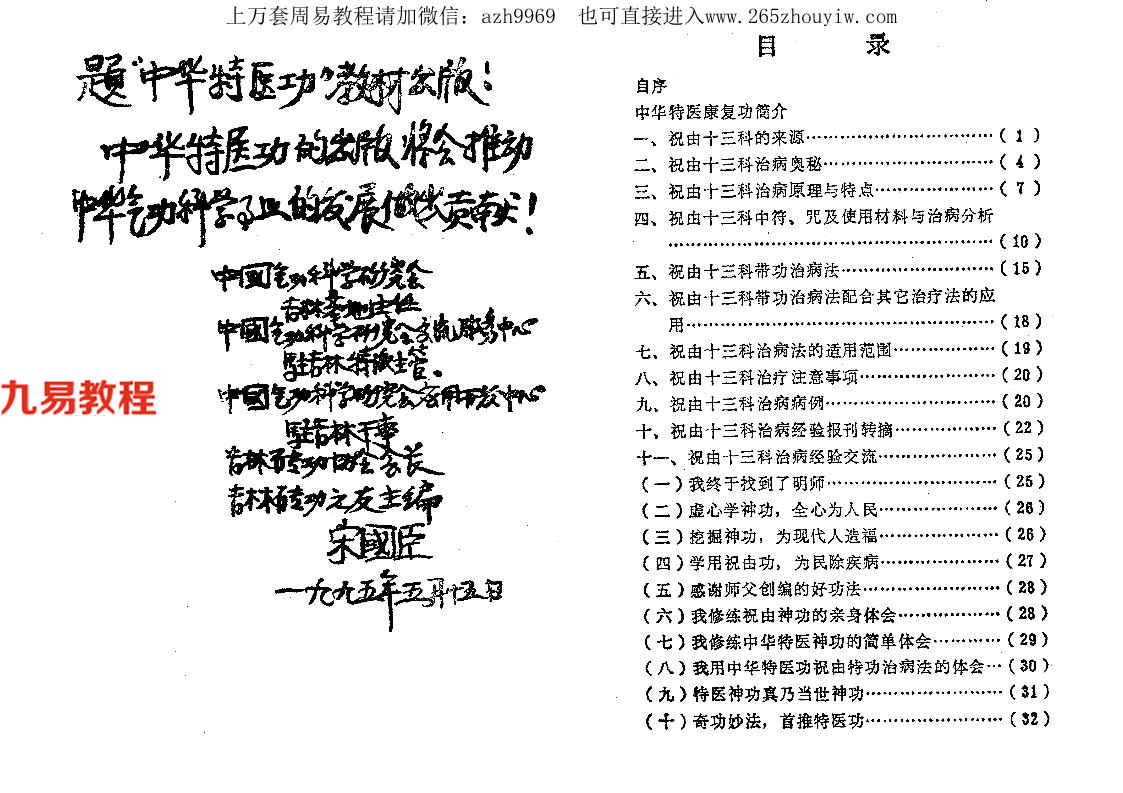 上万套周易教程请加微信：azh9969 也可直接进入www.265zhouyiw.com
题“中华特医功”教材出版！
中华特医功的出版将会推动
中华气功科学事业的发展做出贡献！
中國气功科学研究会
吉林基地主任
中國气功科学研究会交流服务中心
驻吉林特派主管。
中國气功科学研究会应用开发中心
驻吉林干事
吉林市气功协会会长
吉林气功之友主编
宋國臣
一九九五年五月十五日
九易教程
目 录
自序
中华特医康复功简介
一、祝由十三科的来源……………………………（1）
二、祝由十三科治病奥秘…………………………（4）
三、祝由十三科治病原理与特点…………………（7）
四、祝由十三科中符、咒及使用材料与治病分析
……………………………………………………（10）
五、祝由十三科带功治病法………………………（15）
六、祝由十三科带功治病法配合其它治疗法的应
用…………………………………………………（18）
七、祝由十三科治病法的适用范围………………（19）
八、祝由十三科治疗注意事项……………………（20）
九、祝由十三科治病病例…………………………（20）
十、祝由十三科治病经验报刊转摘………………（22）
十一、祝由十三科治病经验交流…………………（25）
（一）我终于找到了明师…………………………（25）
（二）虚心学神功，全心为人民…………………（26）
（三）挖掘神功，为现代人造福…………………（26）
（四）学用祝由功，为民除疾病…………………（27）
（五）感谢师父创编的好功法……………………（28）
（六）我修练祝由神功的亲身体会………………（28）
（七）我修练中华特医神功的简单体会…………（29）
（八）我用中华特医功祝由特功治病法的体会…（30）
（九）特医神功真乃当世神功……………………（31）
（十）奇功妙法，首推特医功……………………（32）